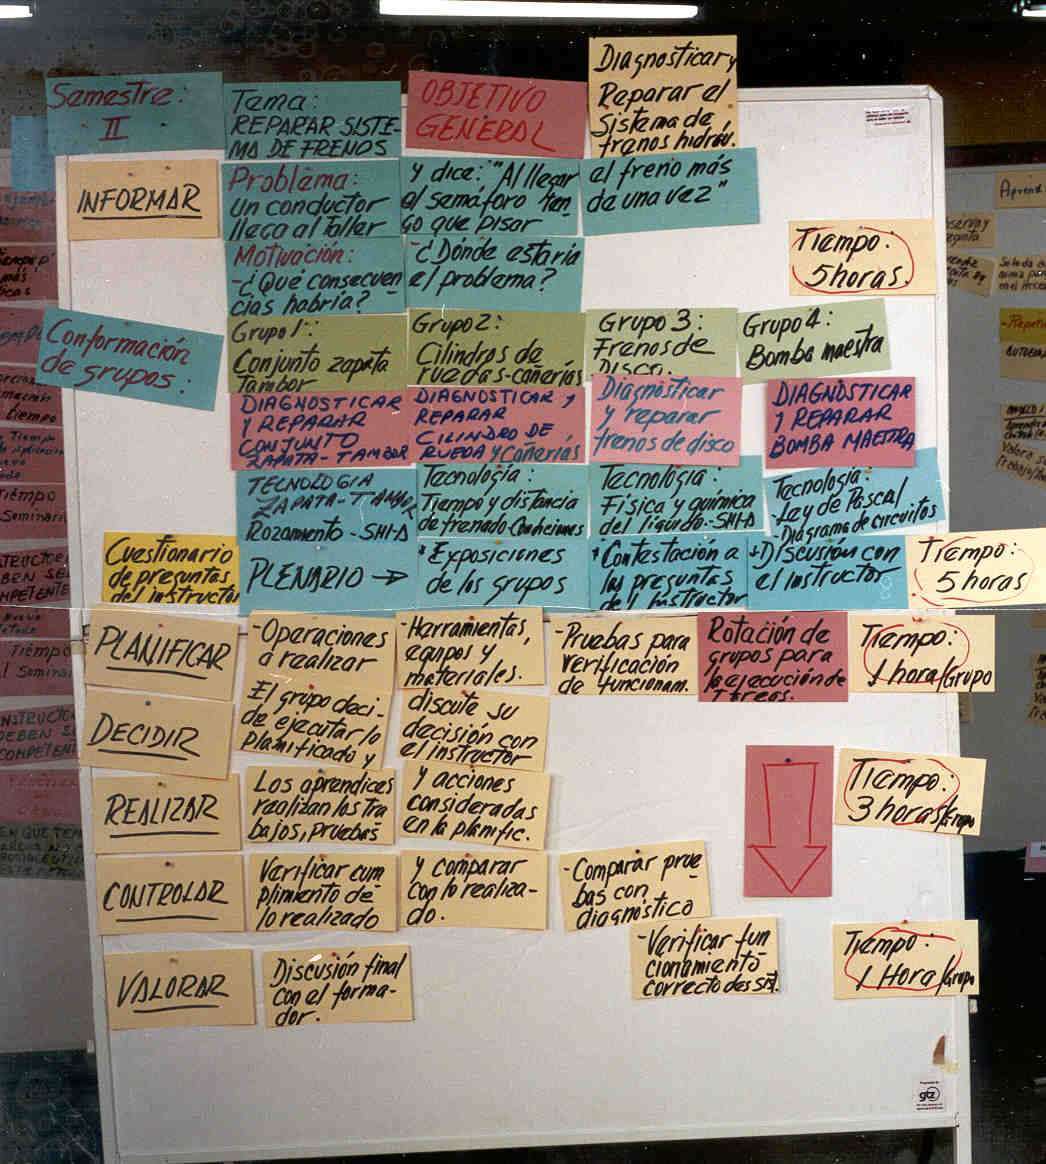 Semestre:
II
Tema:
REPARAR SISTE-
MA DE FRENOS
OBJETIVO
GENERAL
Diagnosticar y
Reparar el
Sistema de
frenos hidráu.
INFORMAR
Problema:
Un conductor
llega al taller
y dice: "Al llegar
al semáforo ten
go que pisar
el freno más
de una vez"
Motivación:
-¿Qué consecuen
cias habría? -
-¿Dónde estaría
el problema?
Tiempo:
5 horas.
Conformación
de grupos:
Grupo 1:
Conjunto zapata
Tambor
Grupo 2:
Cilindros de
ruedas-cañerías
Grupo 3:
Frenos de
Disco.
Grupo 4:
Bomba maestra
DIAGNOSTICAR
Y REPARAR
CONJUNTO
ZAPATA-TAMBOR
DIAGNOSTICAR Y
REPARAR
CILINDRO DE
RUEDA y Cañerías
Diagnosticar
y reparar
frenos de disco
DIAGNOSTICAR
Y REPARAR
BOMBA MAESTRA
TECNOLOGIA
ZAPATA-TAMBOR
Rozamiento-SHI-A
Tecnología:
Tiempo y distancia
de frenado-Condiciones
Tecnología:
Física y química
del líquido.-SHI-A
Tecnología:
-Ley de Pascal
-Diagrama de circuitos
Cuestionario
de preguntas
del instructor
PLENARIO →
* Exposiciones
de los grupos
* Contestación a
las preguntas
del Instructor
* Discusión con
el instructor
Tiempo:
5 horas
PLANIFICAR
-Operaciones
a realizar
-Herramientas,
equipos y
materiales.
-Pruebas para
verificación
de funcionam.
Rotación de
grupos para
la ejecución de
Tareas.
Tiempo:
1 hora/Grupo
DECIDIR
El grupo deci-
de ejecutar lo
planificado y
discute su
decisión con
el instructor
REALIZAR
Los aprendices
realizan los tra
bajos, pruebas
y acciones
consideradas
en la planific.
Tiempo:
3 horas/Grupo
CONTROLAR
Verificar cum
plimiento de
lo realizado
y comparar
con lo realiza-
do.
-Comparar prue
bas con
diagnóstico
-Verificar fun
cionamiento
correcto del sist.
VALORAR
Discusión final
con el forma-
dor.
Tiempo:
1 Hora/Grupo
gtz